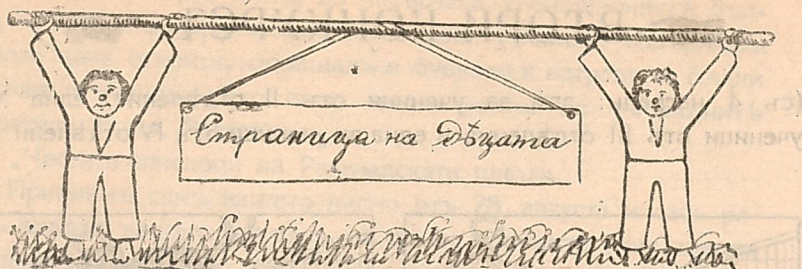 Страница на дѣцата